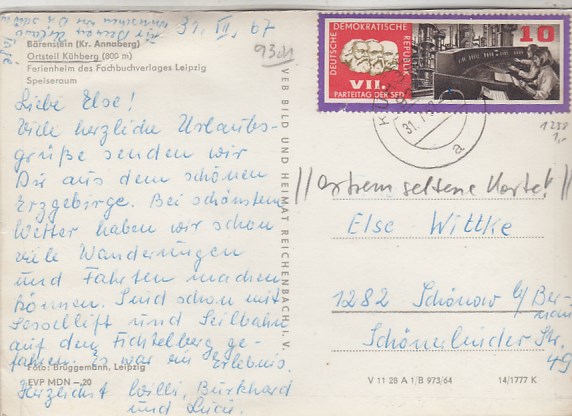 31. VII. 67
9301
Bärenstein (Kr. Annaberg)
Ortsteil Kühberg (800 m)
Ferienheim des Fachbuchverlages Leipzig
Speiseraum
Liebe Else!
Viele herzliche Urlaubs-
grüße senden wir
Dir aus dem schönen
Erzgebirge. Bei schönstem
Wetter haben wir schon
viele Wanderungen
und Fahrten machen
können. Sind schon mit
Sessellift und Seilbahn
auf den Fichtelberg ge-
fahren. Es war ein Erlebnis.
Foto: Brüggemann, Leipzig
EVP MDN -,20
Herzlichst Willi, Burkhard
und Lucie.
VEB BILD UND HEIMAT REICHENBACH I. V.
DEUTSCHE DEMOKRATISCHE REPUBLIK
10
VII.
PARTEITAG DER SED
31.7.
a
1258
1,-
// extrem seltene Karte! //
Else Wittke
1282 Schönow b/Ber-
nau
Schönerlinder Str.
49
V 11 28 A 1/B 973/64
14/1777 K